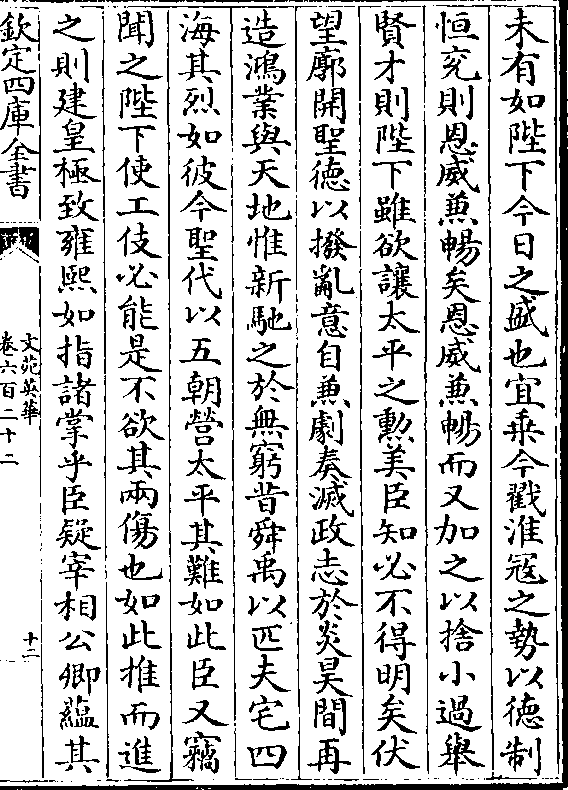 未有如陛下今日之盛也宜乗今戳淮冦之勢以徳制
恒兖則恩威兼暢矣恩威兼暢而又加之以捨小過舉
賢才則陛下雖欲讓太平之勲美臣知必不得明矣伏
望廓開聖徳以撥亂意自兼劇奏滅政志於炎昊間再
造鴻業與天地惟新馳之於無窮昔舜禹以匹夫宅四
海其烈如彼今聖代以五朝營太平其難如此臣又竊
聞之陛下使工伎必能是不欲其兩傷也如此推而進
之則建皇極致雍熙如指諸掌乎臣疑宰相公卿藴其
欽定四庫全書
文苑英華
卷六百二十二
十二